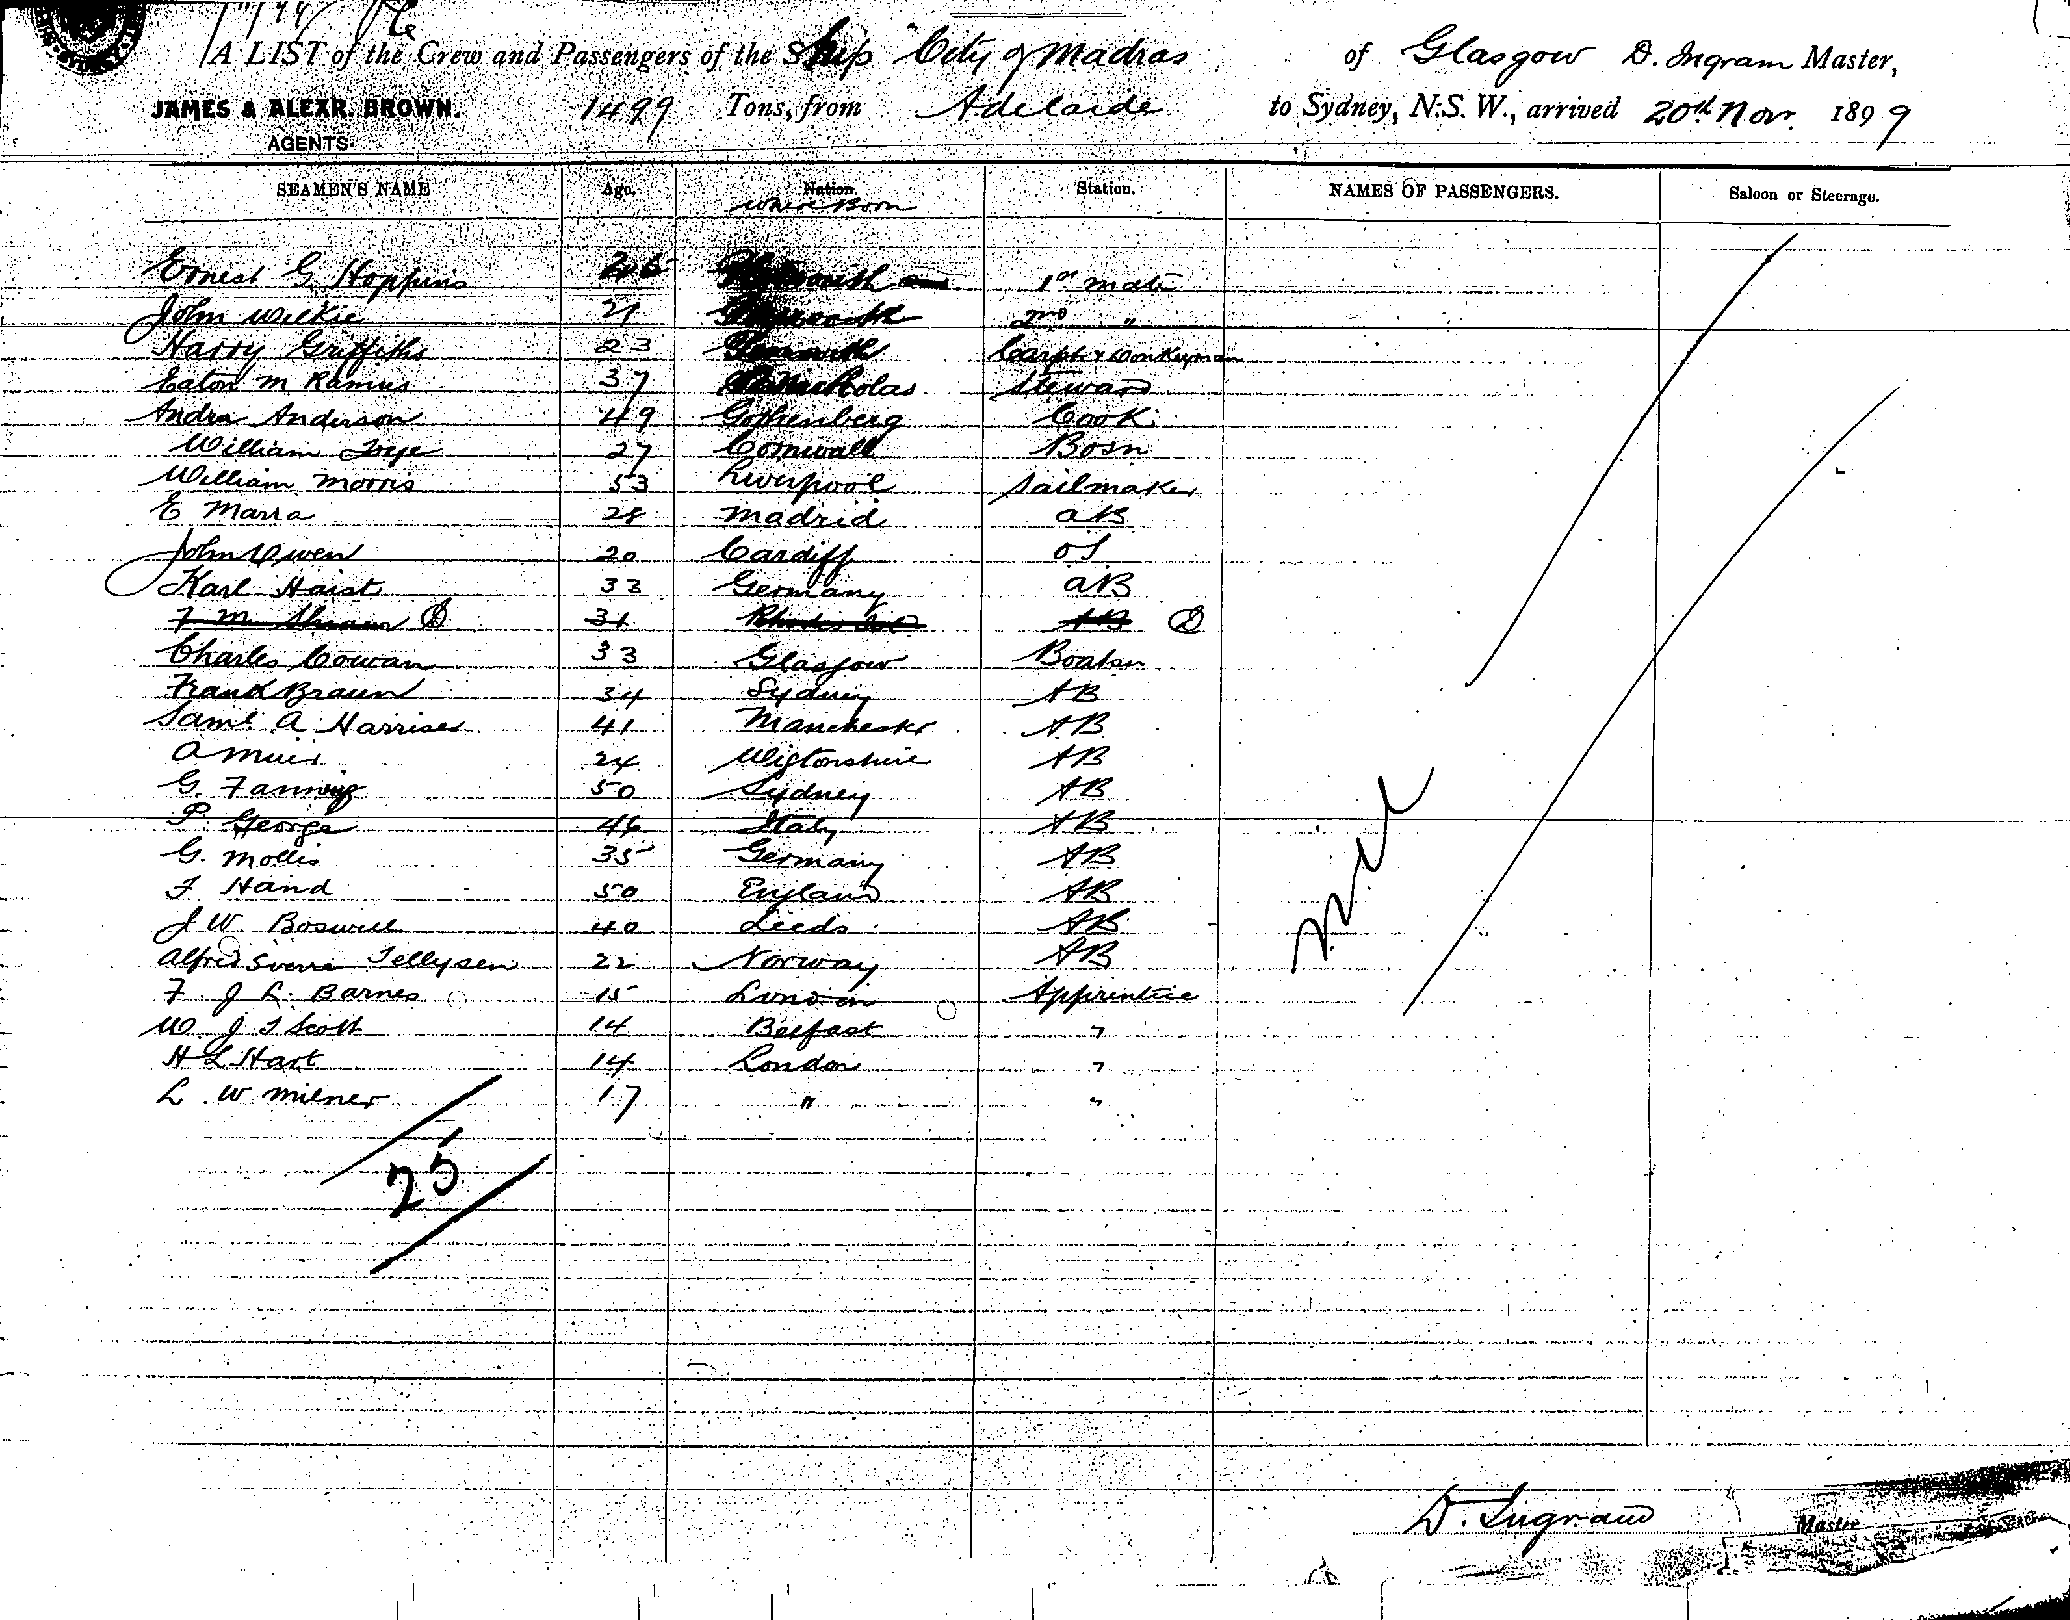 A LIST of the Crew and Passengers of the Ship "City of Madras of Glasgow D. Ingram Master,
JAMES & ALEXR. BROWN. 1499 Tons, from Adelaide to Sydney, N.S.W., arrived 20th Nov. 1899
AGENTS.
SEAMEN'S NAME Age. Nation. Station. NAMES OF PASSENGERS. Saloon or Steerage.
Where Born
Ernest G. Hopkins 1st Mate
John Wilkie 2nd "
Harry Griffiths 23 Carptr & Donkeyman
Eaton M Ramus 37 Steward
Andrea Anderson 49 Gothenberg Cook
William 27 Cornwall Bosn
William Morris 53 Liverpool Sailmaker
E Marra 28 Madrid AB
John Owen 20 Cardiff OS
Karl Haist 33 Germany AB
F M 31 AB
Charles Cowan 33 Glasgow Boatsn
Frank Braun 34 Sydney AB
Saml A Harrison 41 Manchester AB
A Muir 24 Wigtonshire AB
G. Fanning 50 Sydney AB
P. George 46 Italy AB
G. Mollis 35 Germany AB
F Hand 50 England AB
J W Boswell 40 Leeds AB
Alfred Sverre Tellysen 22 Norway AB
F J L Barnes 15 London Apprentice
W J T Scott 14 Belfast "
H L Hart 14 London "
L W Milner 17 " "
Nil
25
D. Ingram Master